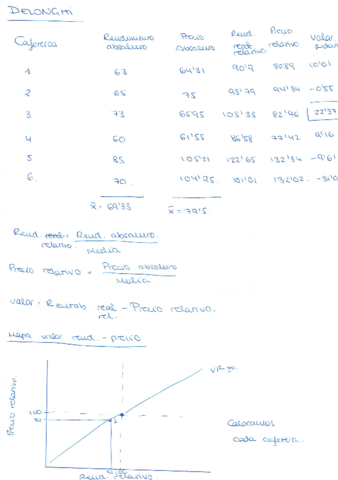 DELONGHI
Cafeteras Rendimiento absoluto Precio absoluto Rend. relativo Precio relativo Valor
1 63 64'31 90'9 80'89 10'01
2 65 75 93'79 94'34 -0'55
3 73 65'95 105'33 82'96 22'37
4 60 61'55 86'58 77'42 9'16
5 85 105'21 122'65 132'34 -9'61
6. 70 104'95 101'01 132'02
x̄ = 69'33 x̄ = 79'5
Rend. relativo = Rend. absoluto / Media
Precio relativo = Precio absoluto / Media
Valor = Rentab rel. - Precio relativo.
Mapa valor rend. - precio
VR
Precio relativo
100
Colocamos
cada cafetera.
Rend. relativo.